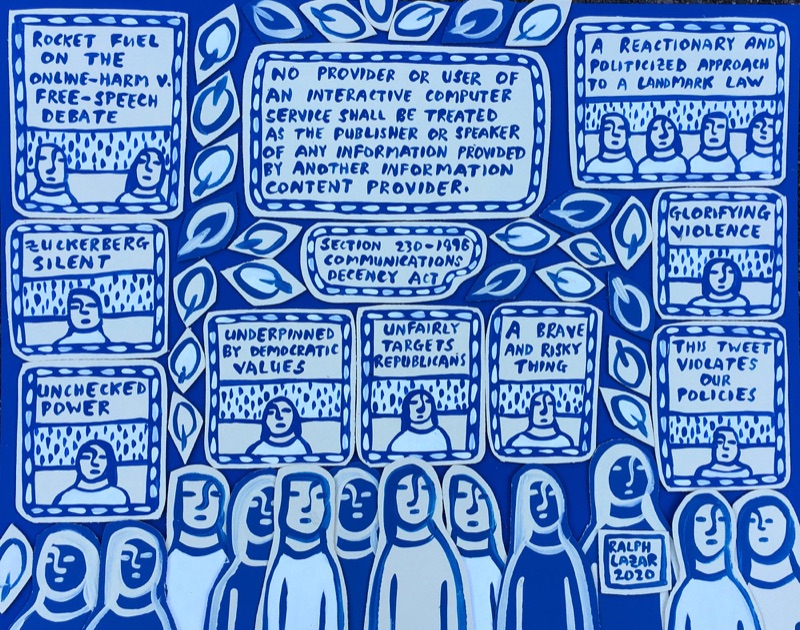 ROCKET FUEL
ON THE
ONLINE-HARM V.
FREE-SPEECH
DEBATE
NO PROVIDER OR USER OF
AN INTERACTIVE COMPUTER
SERVICE SHALL BE TREATED
AS THE PUBLISHER OR SPEAKER
OF ANY INFORMATION PROVIDED
BY ANOTHER INFORMATION
CONTENT PROVIDER.
A REACTIONARY AND
POLITICIZED APPROACH
TO A LANDMARK LAW
ZUCKERBERG
SILENT
SECTION 230-1996
COMMUNICATIONS
DECENCY ACT
GLORIFYING
VIOLENCE
UNCHECKED
POWER
UNDERPINNED
BY DEMOCRATIC
VALUES
UNFAIRLY
TARGETS
REPUBLICANS
A BRAVE
AND RISKY
THING
THIS TWEET
VIOLATES
OUR
POLICIES
RALPH
LAZAR
2020